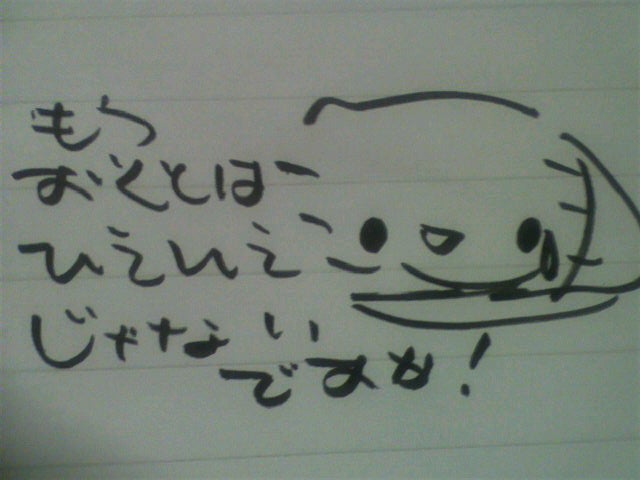 もう
おくとは
ひえいえ
じゃない
ですか!